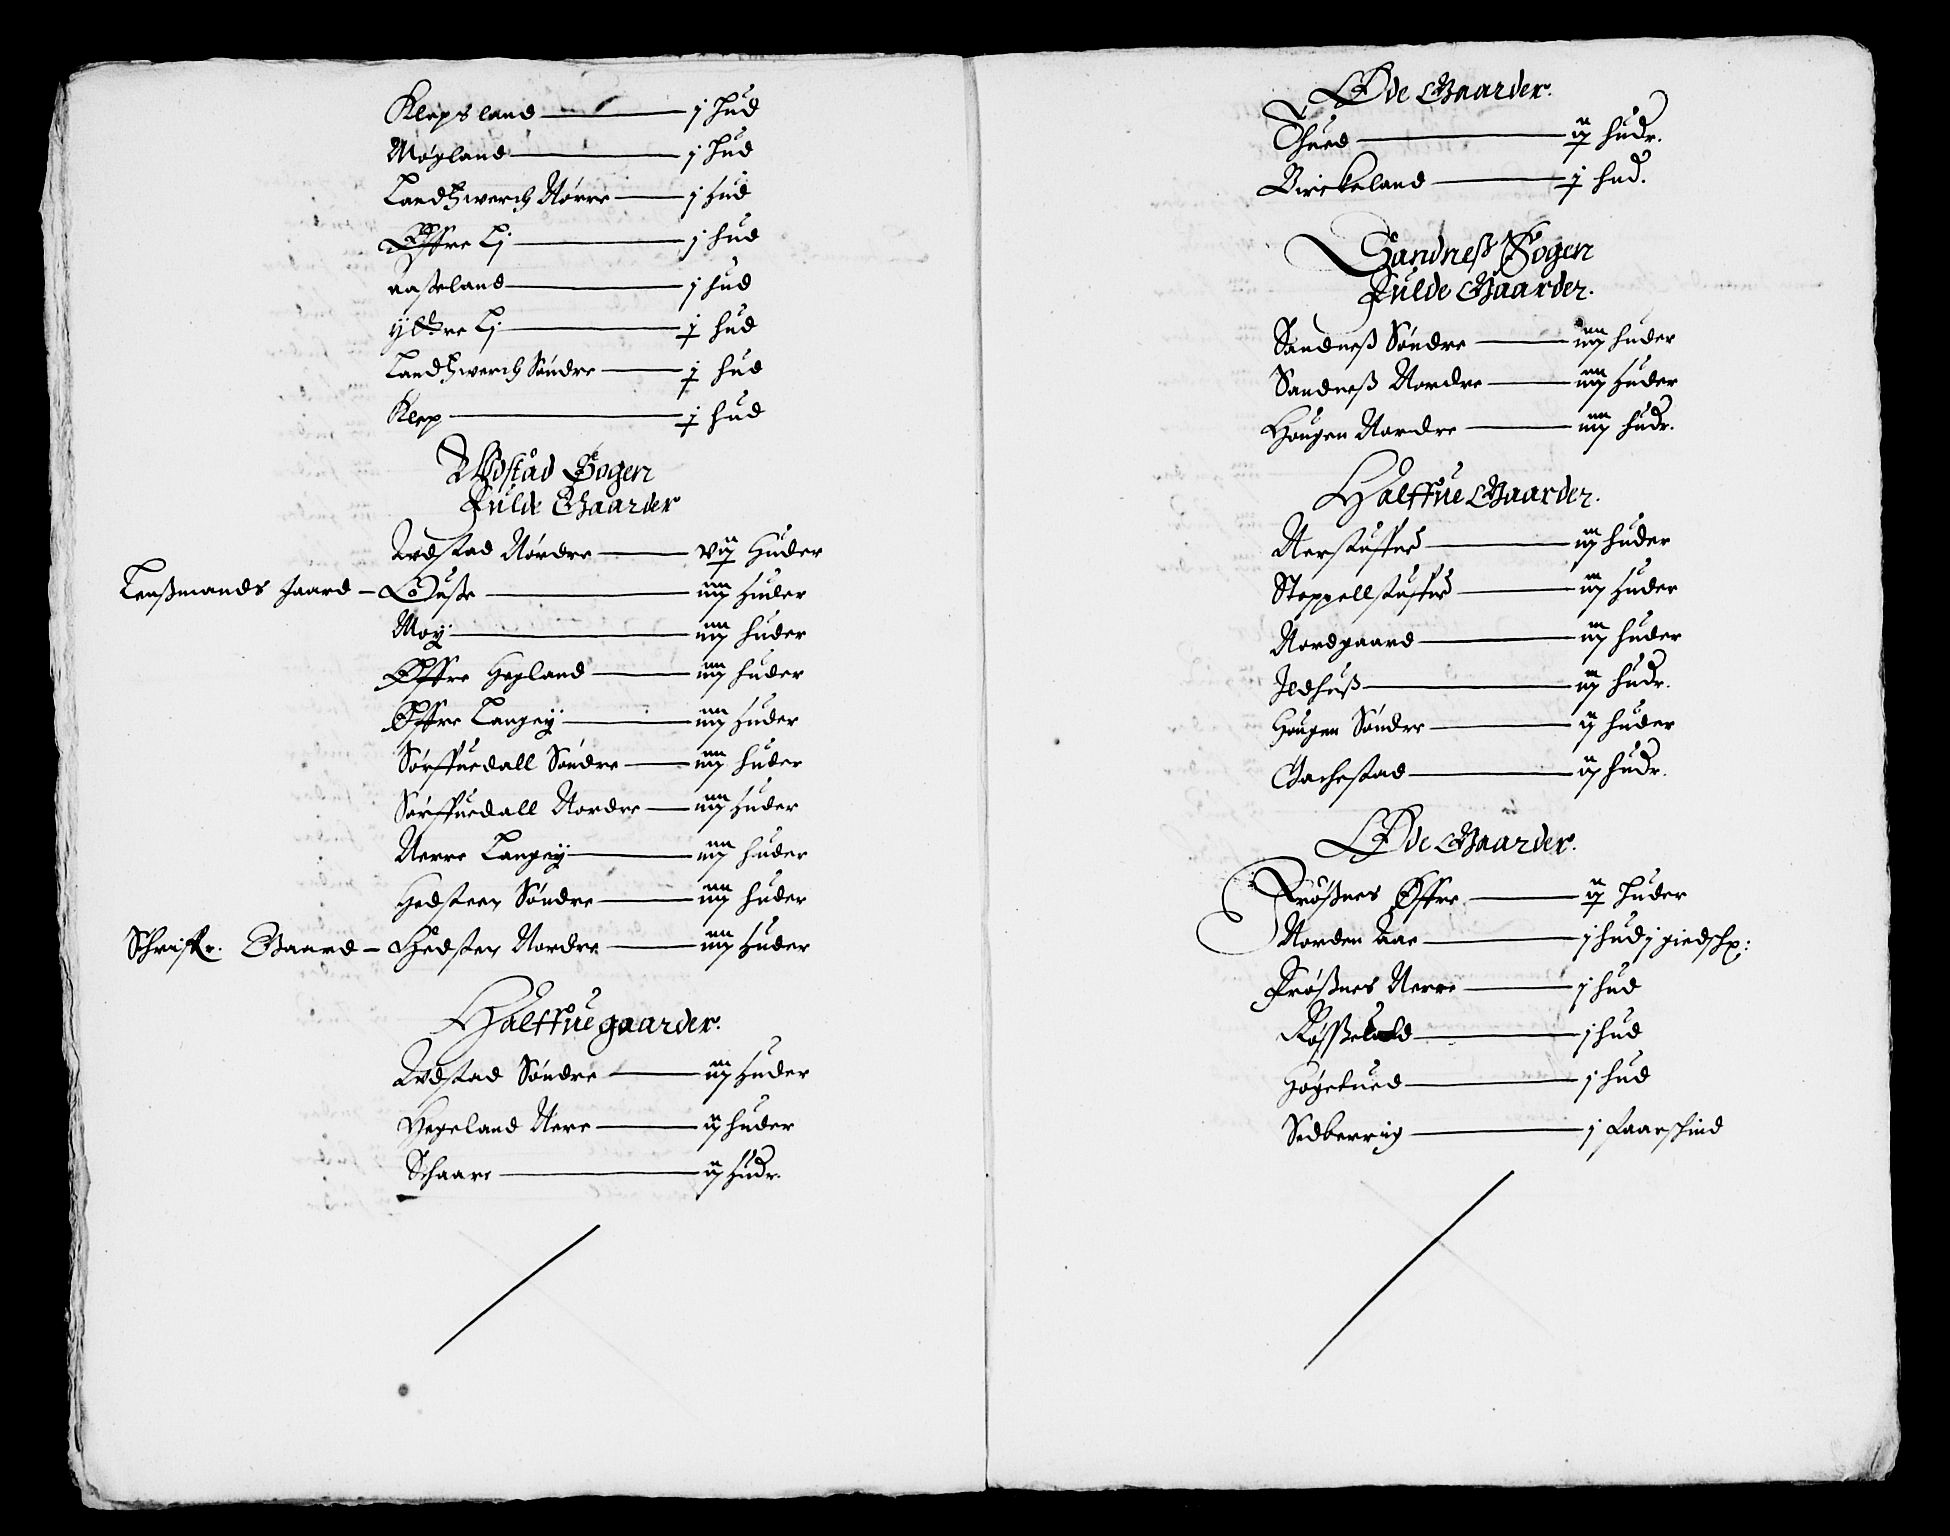 Klepsland — j hud
Møgland — j hud
Landhwerch Nørre — j hud
Øffre Lj — j hud
Aaseland — j hud
yttre Lj — j hud
Landhwerch Søndre — j hud
Klep — j hud
Wdstad Sogen
Fulde Gaarder
Wdstad Nørdre — vij Huder
Lensßmands gaard — Ousse — iiij huder
Moy — iiij huder
Øffre Hegland — iiij huder
Øffre Langey — iiij huder
Sørffuedall Søndre — iiij huder
Sørffuedall Nordre — iiij huder
Nerre Langey — iiij huder
Hedsteen Søndre — iiij huder
Schriffr. Gaard — Hedsten Nordre — iiij huder
Halffue gaarder.
Wdstad Søndre — iij huder
Hegeland Nere — ij huder
Schaare — ij hudr.
Øde Gaarder.
Thued — ij hudr.
Birckeland — j hud.
Sandneß Sogen
Fulde Gaarder.
Sandneß Søndre — iiij huder
Sandneß Nordre — iiij huder
Hougen Nordre — iiij hudr.
Halffue Gaarder.
Nerstuffed — iij huder
Steppellstuffed — iij huder
Nordgaard — iij huder
Ildhuß — iij hudr.
Hougen Søndre — ij huder
Tachestad — ij hudr.
Øde Gaarder.
Frøßnes Øffre — ij huder
Norden Aae — j hud j giedsch:
Frøßnes Nerre — j hud
Røsseland — j hud
Høgetued — j hud
Sedberrig — j faarschind